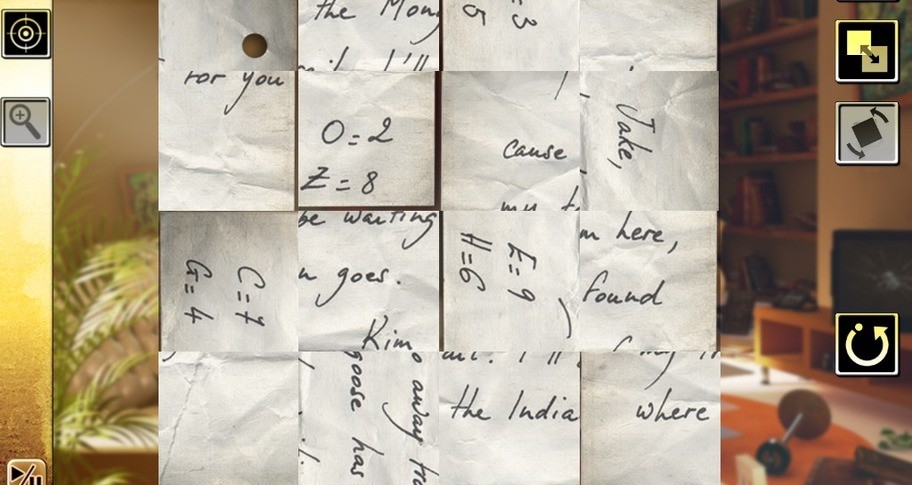 the Mon
= 3
5
I'll
for you
O = 2
Z = 8
cause
Jake,
my t
be wanting
goes.
Kim
C = 7
G = 4
E = 9
H = 6
m here,
found
the India
where
away
goose has